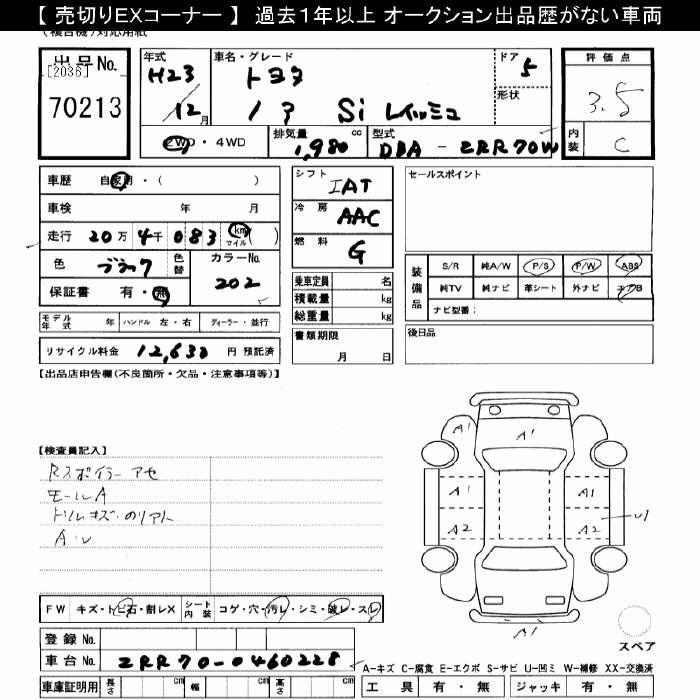 【 売切りEXコーナー 】 過去1年以上 オークション出品歴がない車両
出品No.
[2036]
70213
年式
H23
12月
車名・グレード
トヨタ
ノア Si
ドア
5
形状
2WD・4WD
排気量
1,980 cc
型式
DBA - ZRR70W
評価点
3.5
内装
C
車歴 自家用・( )
車検 年 月
走行 20万 4千 083 km マイル ( )
色 ブラック 色替
カラーNo.
202
保証書 有・無
シフト
IAT
冷房
AAC
燃料
G
乗車定員 名
積載量 kg
総重量 kg
書類期限
月 日
セールスポイント
装備品
S/R 純A/W P/S P/W ABS
純TV 純ナビ 革シート 外ナビ エアB
ナビ型番：
後日品
モデル年式 年 ハンドル 左・右 ディーラー・並行
リサイクル料金 12,630 円 預託済
【出品店申告欄(不良箇所・欠品・注意事項等)】
【検査員記入】
Rスポイラー アセ
モールA
A・U
A1
A1
A1
A1
A1
A2
A2
U1
スペア
FW キズ・トビ石・割レX シート内装 コゲ・穴・汚レ・シミ・破レ・スレ
登録No.
車台No. ZRR70-0460228
車庫証明用 長さ cm 幅 cm 高さ cm
A—キズ C—腐食 E—エクボ S—サビ U—凹ミ W—補修 XX—交換済
工具 有・無 ジャッキ 有・無